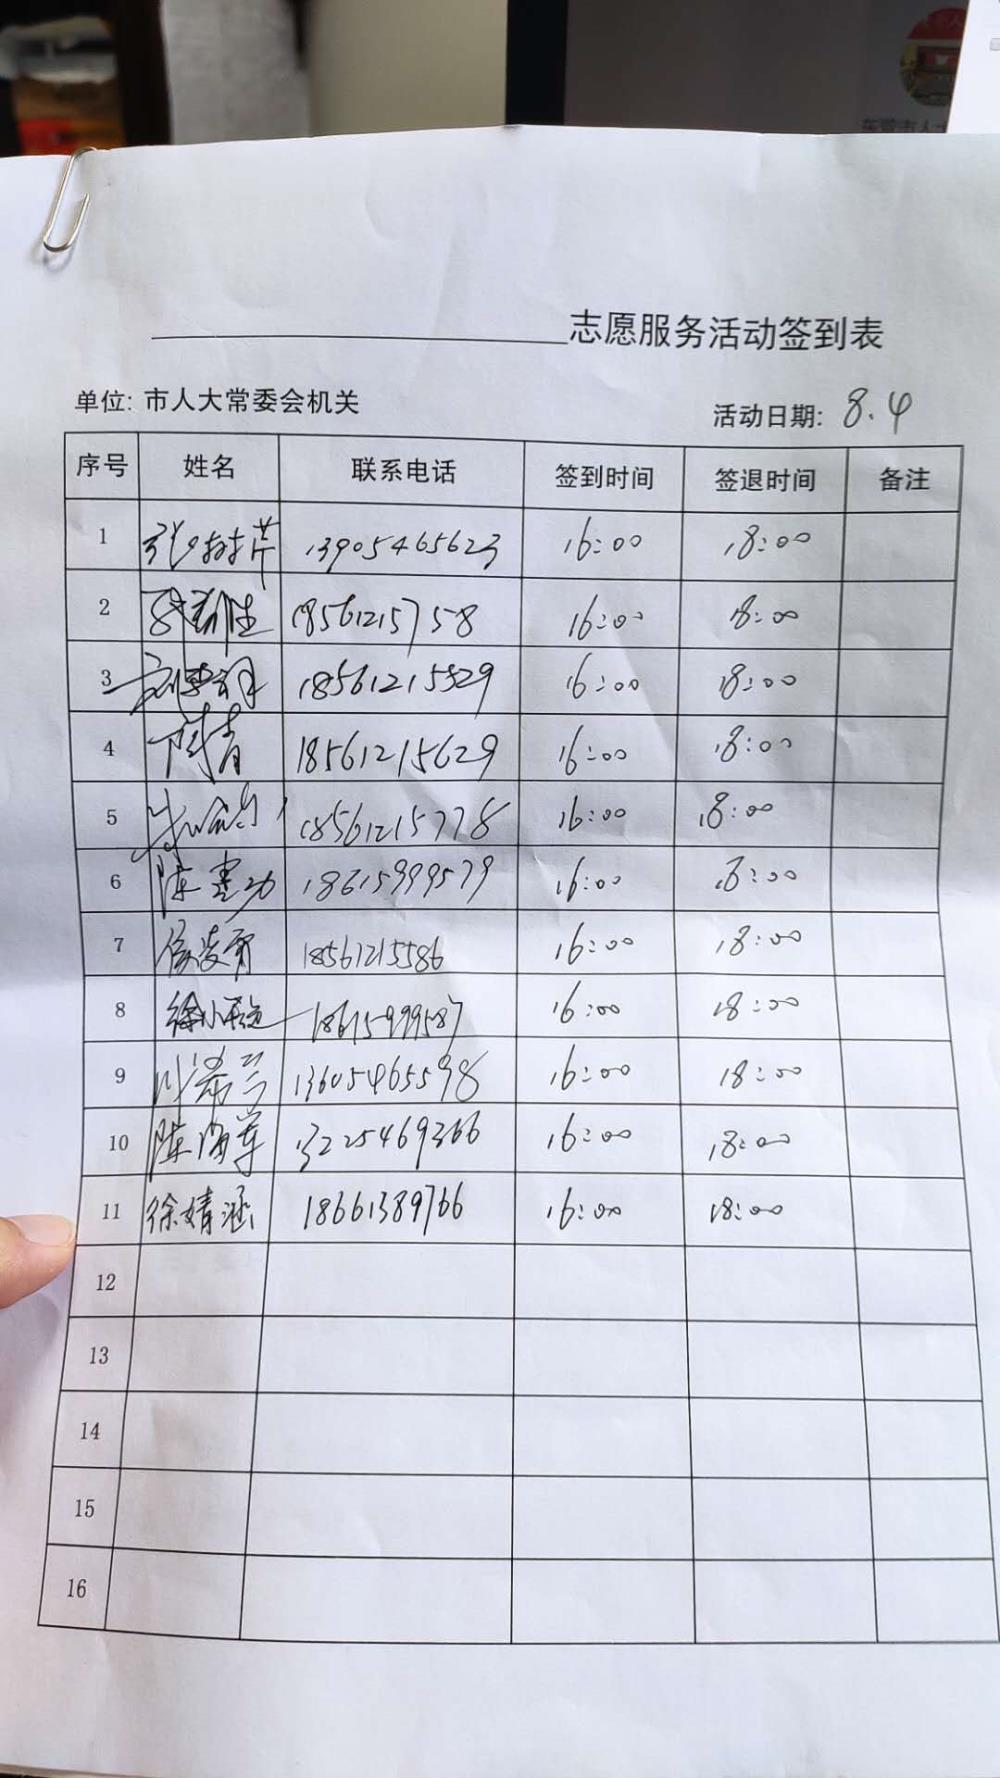 志愿服务活动签到表
单位: 市人大常委会机关
活动日期: 8.4
序号 姓名 联系电话 签到时间 签退时间 备注
1 张树芹 13905465623 16:00 18:00
2 18561215758 16:00 18:00
3 18561215529 16:00 18:00
4 青 18561215629 16:00 18:00
5 18561215778 16:00 18:00
6 陈建功 18615999579 16:00 18:00
7 侯凌霄 18561215586 16:00 18:00
8 徐小 18615999587 16:00 18:00
9 兰 13605465598 16:00 18:00
10 陈海军 13225469366 16:00 18:00
11 徐婧涵 18661389766 16:00 18:00
12
13
14
15
16